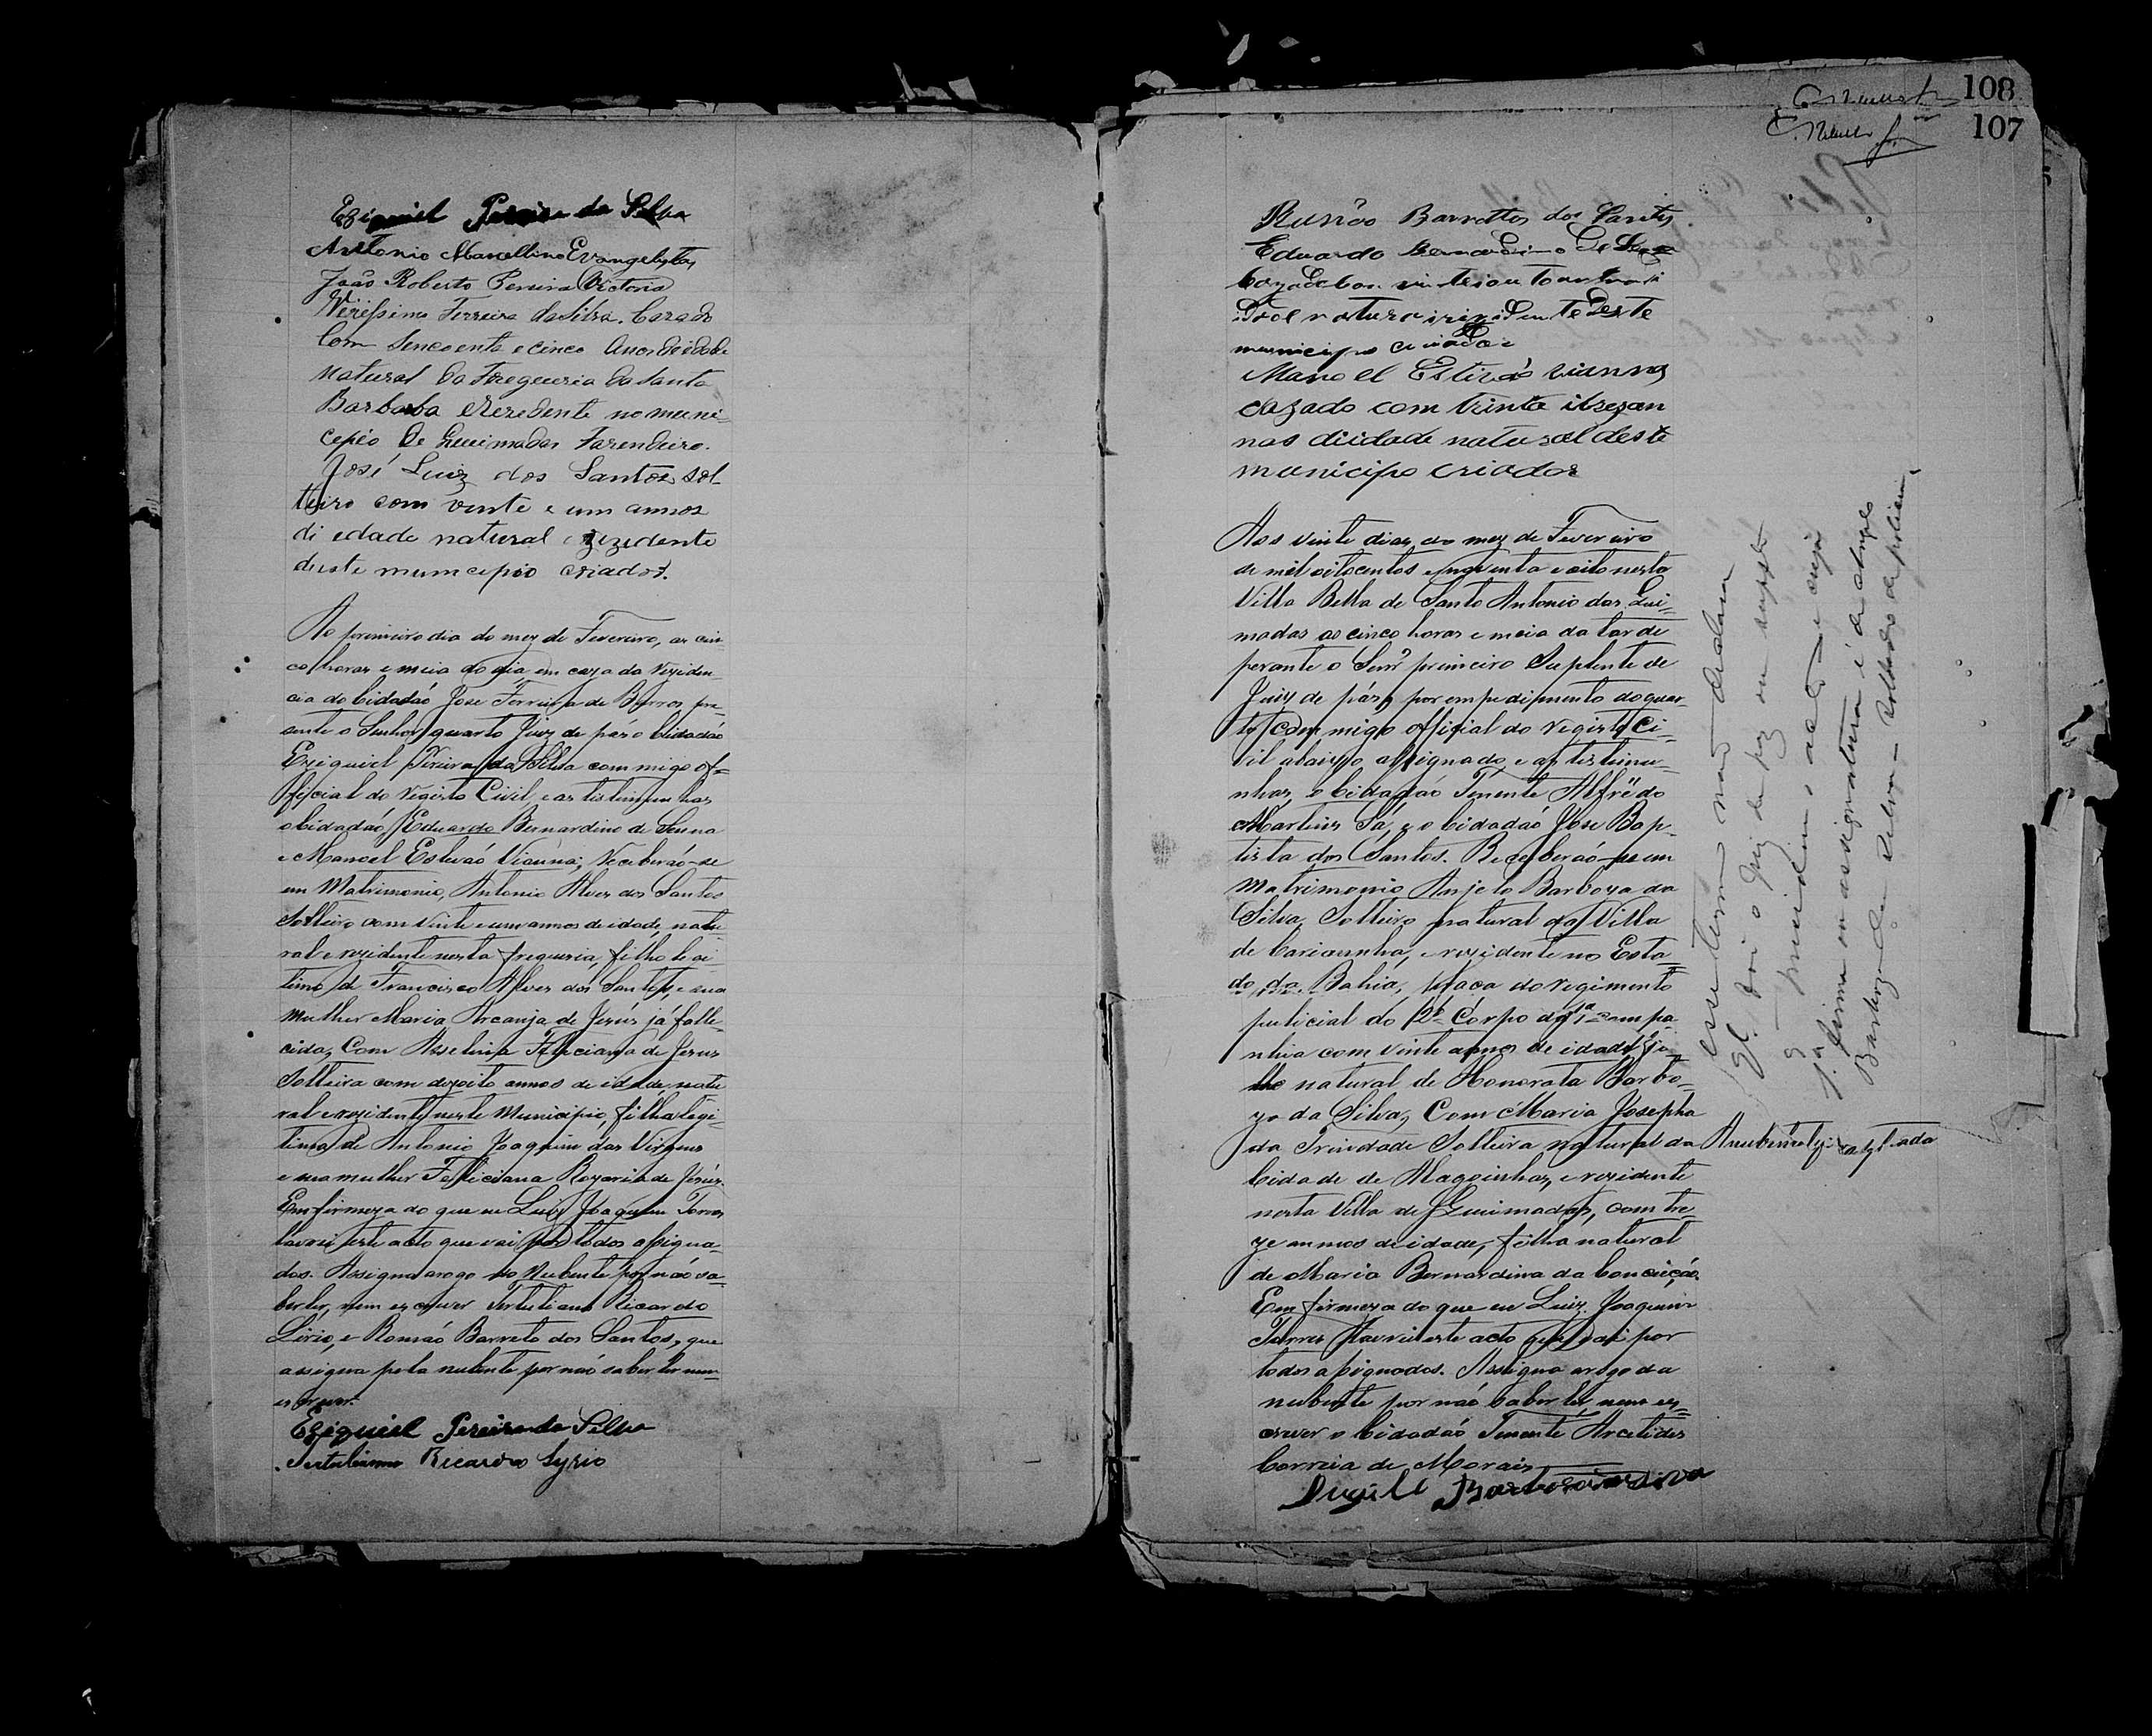 Eziquiel Pereira da Silva
Antonio Marcellino Evangelista
João Roberto Pereira Victoria
Verissimo Ferreira da Silva. Cazado
Com Sencoenta e cinco Anos de idade
Natural da Freegueria da Santa
Barbaba e Rezedente no muni-
cepio de Queimadas Fazendeiro.
José Luiz dos Santos sol-
teiro com vinte e um annos
di edade natural e rezedente
deste municipio criador.
Ao primeiro dia do mez de Fevereiro, as cin-
co horas e meia do dia em caza da reziden-
cia do Cidadão Jose Ferreira de Barros, pre-
sente o Senhor quarto Juiz de páz o Cidadão
Eziquiel Pereira da Silva commigo of-
ficial do registo Civil, e as tistimunhas
o Cidadão Eduardo Bernardino de Senna
e Manoel Estevaó Vianna; Receberaó-se
em Matrimonio, Antonio Alves dos Santos
Solteiro com vinte e um annos de idade, natu-
ral e rezidente nesta freguezia, filho legi-
timo de Francisco Alves dos Santos, e sua
mulher Maria Arcanja de Jesús já falle-
cida, Com Feliciana de Jesus
Solteira com dezoito annos de idade natu
ral e rezidente neste Municipio, filha legi-
tima de Antonio Joaquim das Virgens
e sua mulher Felliciana Rozaria de Jesús.
Em firmeza do que eu Luiz Joaquim Torres
lavrei este acto que vai por todos assigna-
dos. Assigna arogo do Nubente por não sa-
ber ler, nem escrever Tertuliano Ricardo
Lirio, e Romaó Barreto dos Santos, que
assigna pela nubente por naó saber ler nem
escrever.
Eziquiel Pereira da Silva
Tertuliano Ricardo Lyrio
108
107
Barrettos dos Santos
Eduardo Bernardino de
municipio criador
Manoel Estivaó vianna
cazado com trinta itrezan
nos diidade natural deste
municipo criador
Aos vinte dias do mez de Fevereiro
de mil oitocentos e noventa e oito nesta
Villa Bella de Santo Antonio das Quei-
madas as cinco horas e meia da tarde
perante o Senr. primeiro Suplente de
Juiz de páz, por empedipmento do quar-
to, commigo official do registo Ci-
vil abaixo assignado, e as tistimu-
nhas, o Cidadaó Tenente Alfrêdo
Martins Sá, e o Cidadaó Jóse Bap-
tista dos Santos. Receberaó-se em
Matrimonio Anjelo Barboza da
Silva, Solteiro natural da Villa
de e rezidente no Esta-
do da Bahia, praca do regimento
pulicial do 2º Corpo da 1ª compa-
nhia com vinte annos de idade, fi-
lho natural de Honorata Barbo-
za da Silva, Com Maria Josepha
da Trindade Solteira natural da
Cidade de Alagoinhas, e rezidente
nesta Villa de Queimadas, com tre-
ze annos de idade, filha natural
de Maria Bernardina da Conceiçáo.
Em firmeza do que eu Luiz Joaquim
Torres lavrei este acto que vai por
todos assignados. Assigna arogo da
nubente por naó saber ler nem es-
crever o Cidadaó Tenente Arcelides
Correia de Morais
Barbosa da Silva
esse termo não declara
ql. foi o Juiz de paz ou suppte
q presidiu o acto e cuja
1ª firma ou assignatura é de Angelo
Barboza da Silva - soldado de policia.